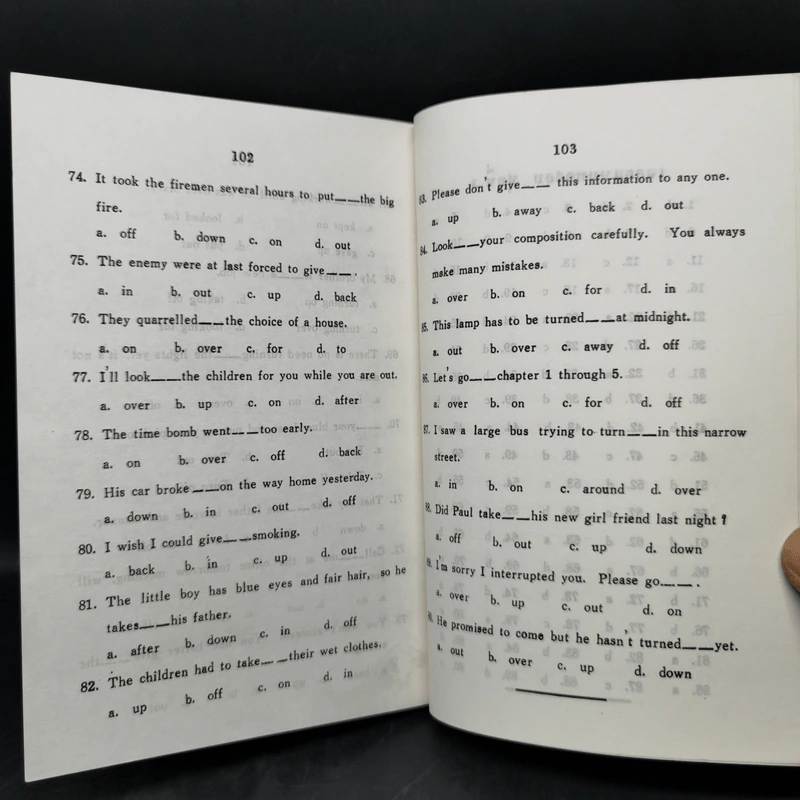 102
74. It took the firemen several hours to put___the big
fire.
a. off b. down c. on d. out
75. The enemy were at last forced to give___.
a. in b. out c. up d. back
76. They quarrelled___the choice of a house.
a. on b. over c. for d. to
77. I'll look___the children for you while you are out.
a. over b. up c. on d. after
78. The time bomb went___too early.
a. on b. over c. off d. back
79. His car broke___on the way home yesterday.
a. down b. in c. out d. off
80. I wish I could give___smoking.
a. back b. in c. up d. out
81. The little boy has blue eyes and fair hair, so he
takes___his father.
a. after b. down c. in d. off
82. The children had to take___their wet clothes.
a. up b. off c. on d. in
103
83. Please don't give___ this information to any one.
a. up b. away c. back d. out
84. Look___your composition carefully. You always
make many mistakes.
a. over b. on c. for d. in
85. This lamp has to be turned___at midnight.
a. out b. over c. away d. off
86. Let's go___chapter 1 through 5.
a. over b. on c. for d. off
87. I saw a large bus trying to turn___in this narrow
street.
a. in b. on c. around d. over
88. Did Paul take___his new girl friend last night?
a. off b. out c. up d. down
89. I'm sorry I interrupted you. Please go___.
a. over b. up c. out d. on
90. He promised to come but he hasn't turned___yet.
a. out b. over c. up d. down